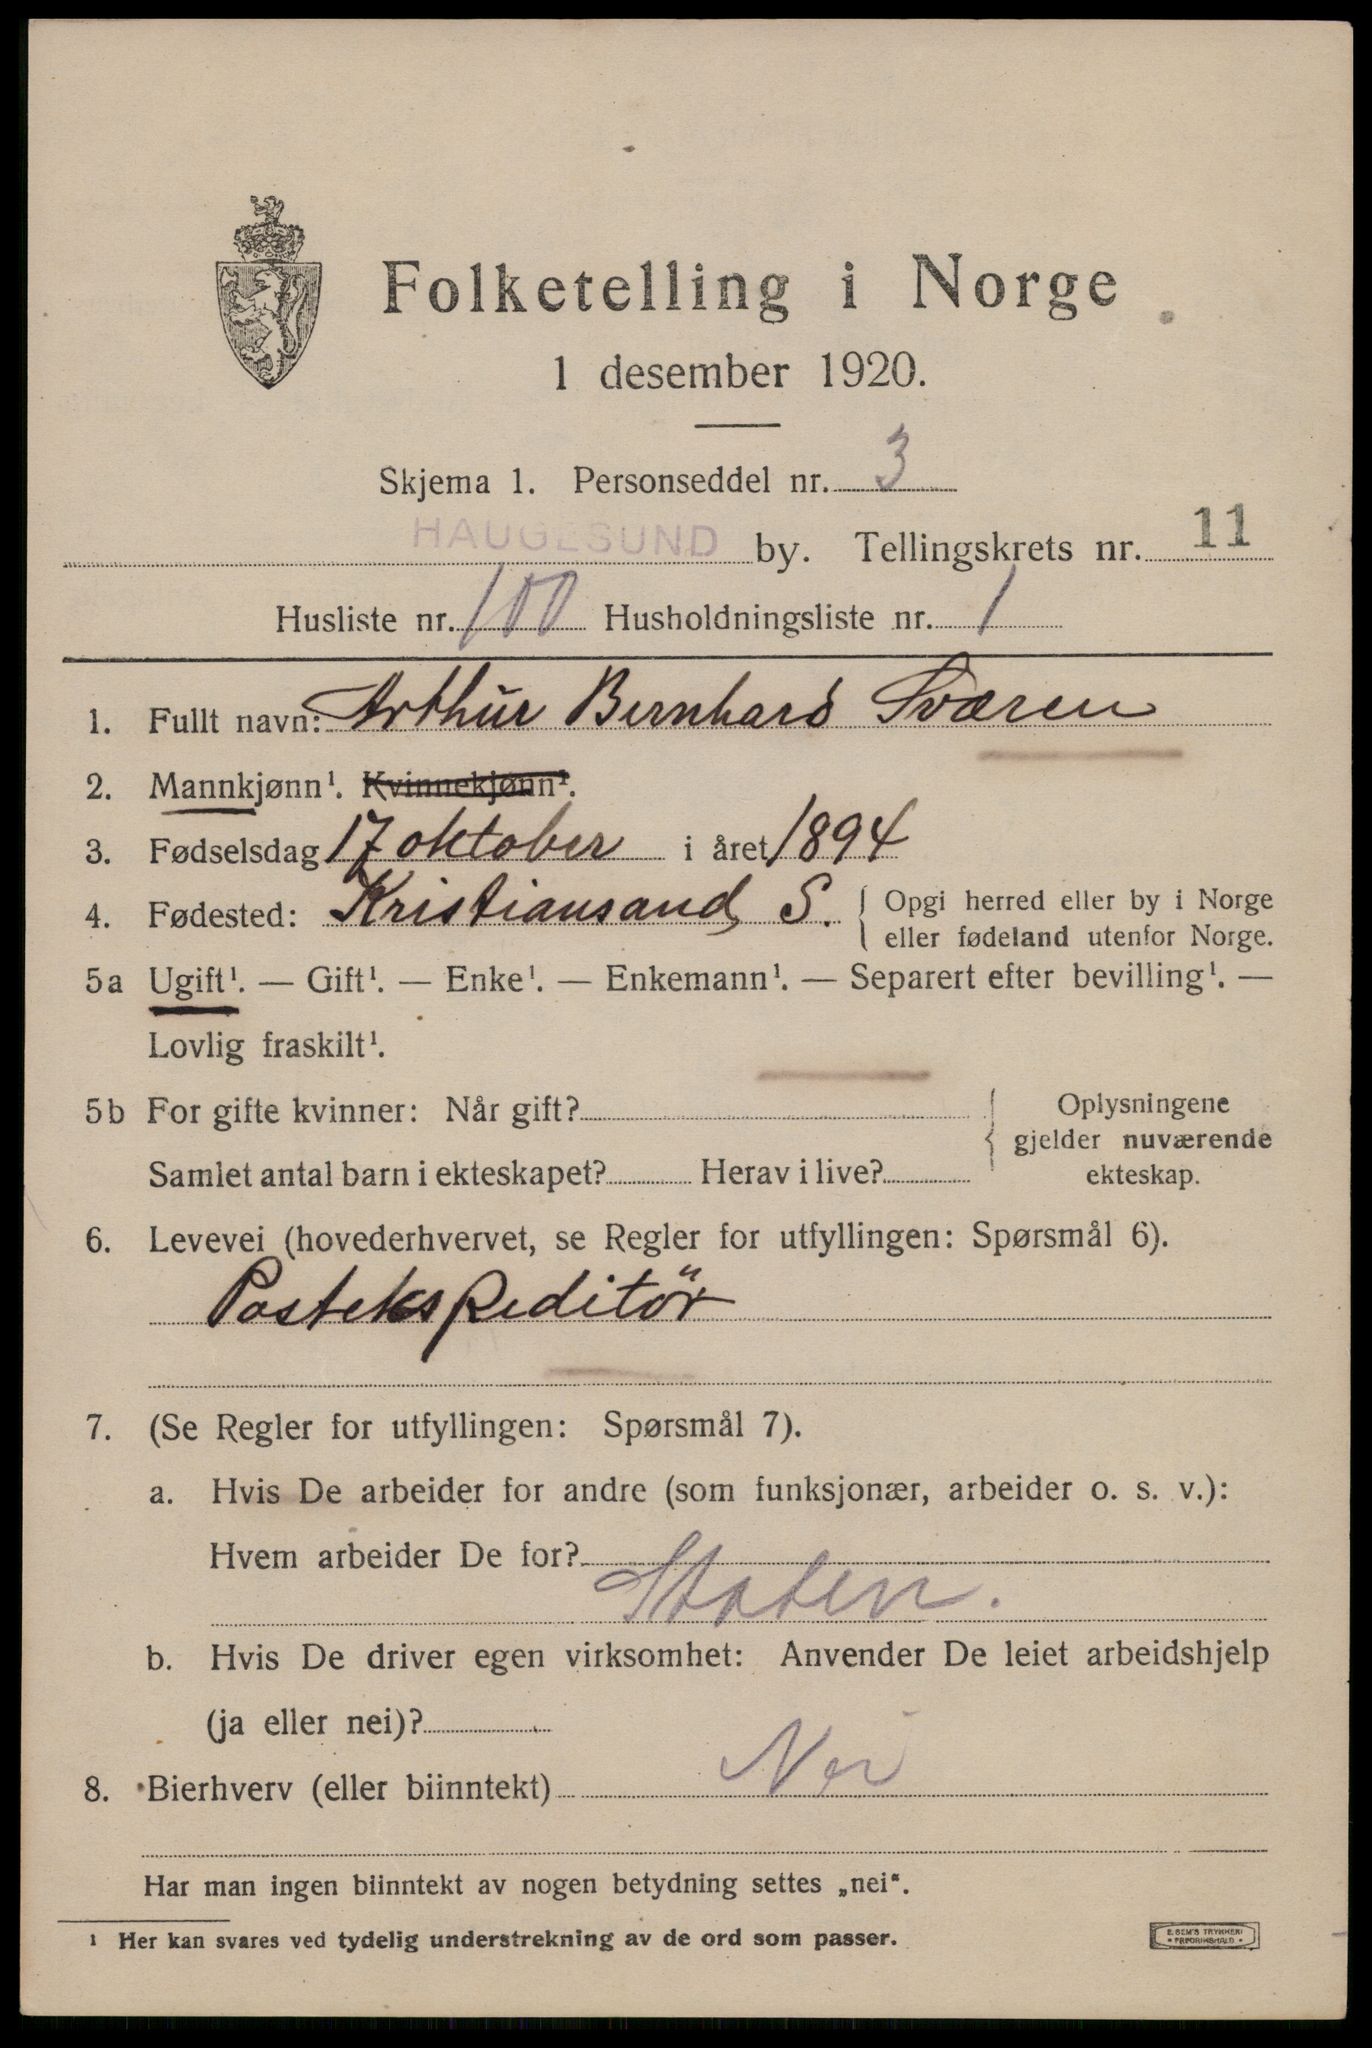 Folketelling i Norge
1 desember 1920.
Skjema 1. Personseddel nr. 3
HAUGESUND by. Tellingskrets nr. 11
Husliste nr. 100 Husholdningsliste nr. 1
1. Fullt navn: Arthur Bernhard Sværen
2. Mannkjønn¹. Kvinnekjønn¹.
3. Fødselsdag 17 oktober i året 1894
4. Fødested: Kristiansand S. { Opgi herred eller by i Norge
eller fødeland utenfor Norge.
5a Ugift¹. — Gift¹. — Enke¹. — Enkemann¹. — Separert efter bevilling¹. —
Lovlig fraskilt¹.
5b For gifte kvinner: Når gift? Oplysningene
gjelder nuværende
Samlet antal barn i ekteskapet? Herav i live? ekteskap.
6. Levevei (hovederhvervet, se Regler for utfyllingen: Spørsmål 6).
Postekspeditör
7. (Se Regler for utfyllingen: Spørsmål 7).
a. Hvis De arbeider for andre (som funksjonær, arbeider o. s. v.):
Hvem arbeider De for?
Staten.
b. Hvis De driver egen virksomhet: Anvender De leiet arbeidshjelp
(ja eller nei)?
8. Bierhverv (eller biinntekt) Nei
Har man ingen biinntekt av nogen betydning settes „nei“.
¹ Her kan svares ved tydelig understrekning av de ord som passer.
E. SEM'S TRYKKERI
FREDRIKSHALD